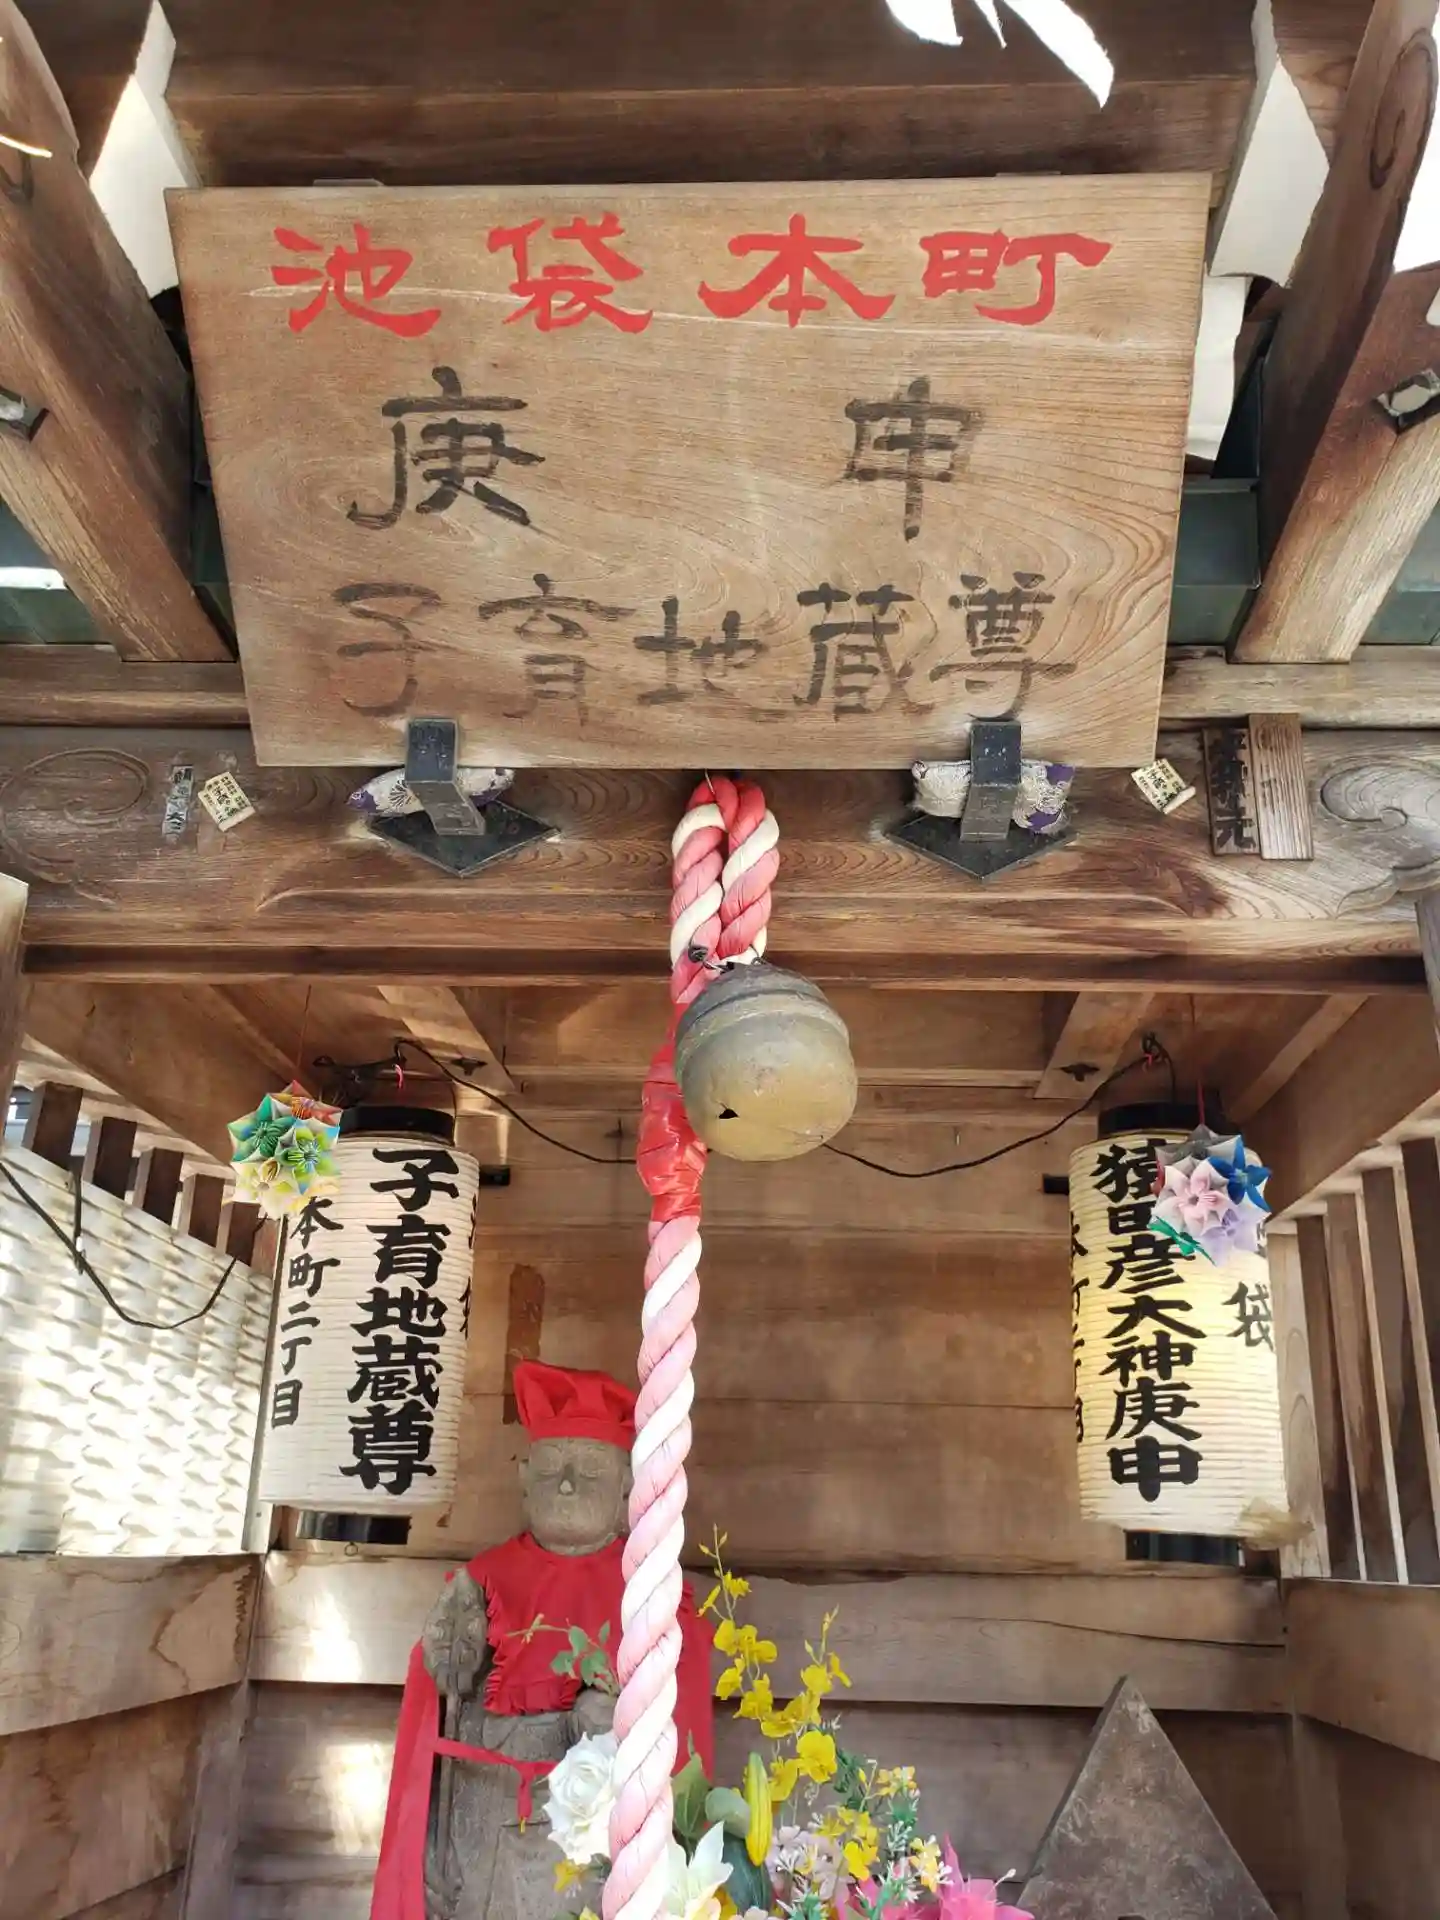 池袋本町
庚申
子育地蔵尊
子育地蔵尊
本町二丁目
袋
猿田彦大神庚申